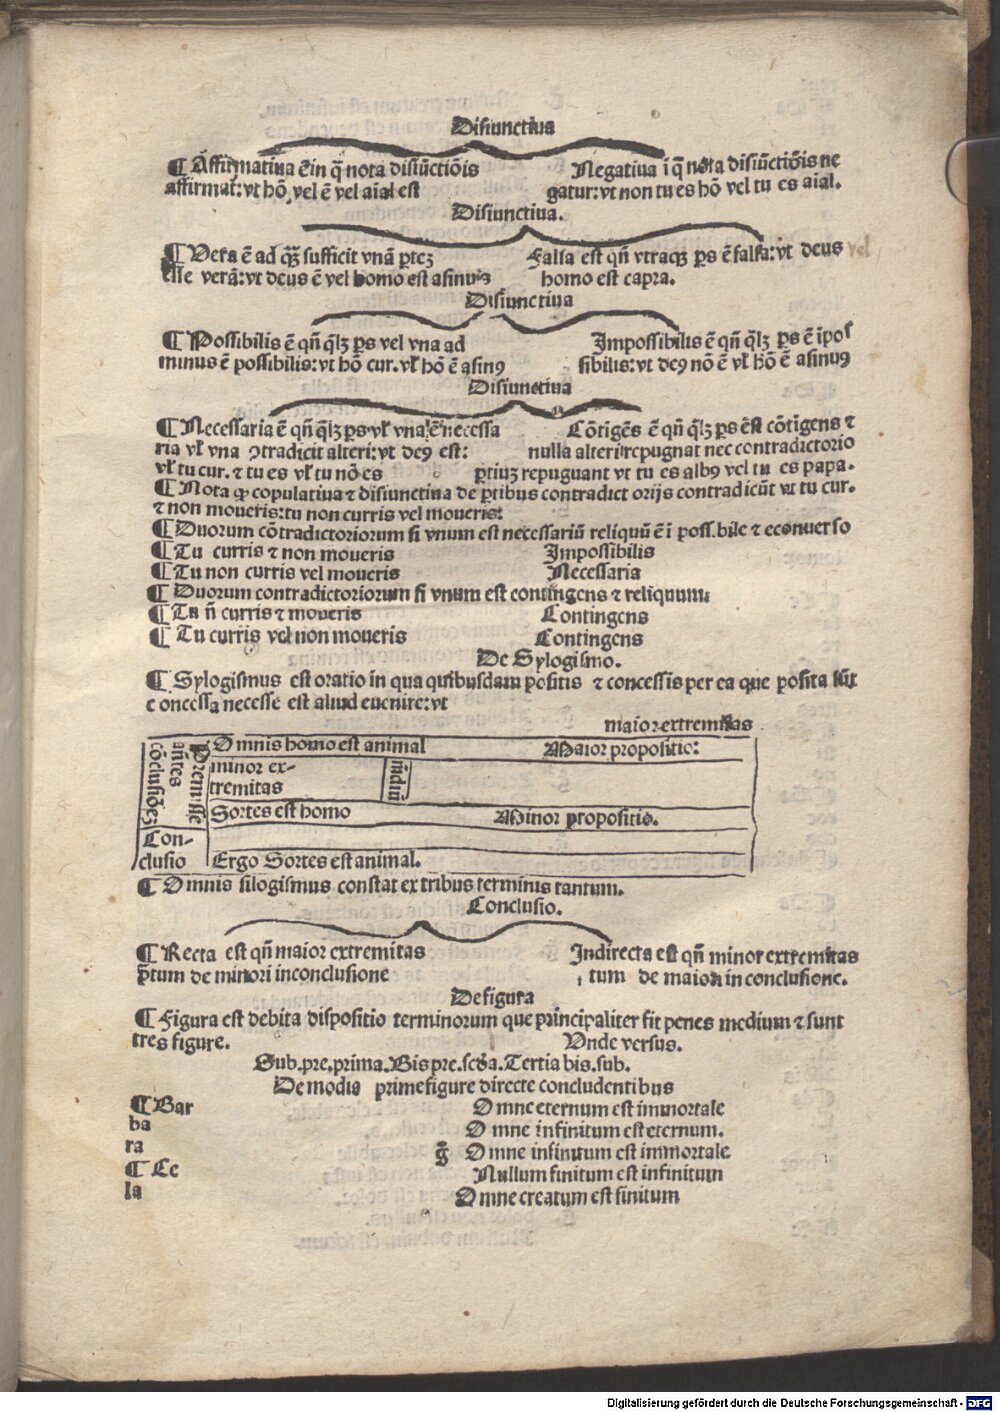 Disiunctiua
¶ Affirmatiua ē in q̄ nota disiūctiōis
affirmat: vt hō vel ē vel aīal est
Negatiua ī q̄ nota disiūctiōis ne
gatur: vt non tu es hō vel tu es aīal.
Disiunctiua.
¶ Vera ē ad quā sufficit vnā ptē
esse verā: vt deus ē vel homo est asinus
Falsa est qn̄ vtraqꝫ ps ē falsa: vt deus vel
homo est capra.
Disiunctiua
¶ Possibilis ē qn̄ q̄lꝫ ps vel vna ad
minus ē possibilis: vt hō cur. vl̓ hō ē asinꝰ
Impossibilis ē qn̄ q̄lꝫ ps ē īpos
sibilis: vt deꝰ nō ē vl̓ hō ē asinuꝰ
Disiunctiua
¶ Necessaria ē qn̄ q̄lꝫ ps vl̓ vna ē necessa
ria vl̓ vna ꝯtradicit alteri: vt deꝰ est:
vl̓ tu cur. ⁊ tu es vl̓ tu nō es
Cōtigēs ē qn̄ q̄lꝫ ps ē cōtīgens ⁊
nulla alteri repugnat nec contradictorio
ptiuꝫ repuguant vt tu es albꝰ vel tu es papa.
¶ Nota ꝙ copulatiua ⁊ disiunctiua de ꝑtibus contradict orijs contradicūt vt tu cur.
⁊ non moueris: tu non curris vel moueris:
¶ Duorum cōtradictoriorum si vnum est necessariū reliquū ē ī poss.bile ⁊ econuerso
¶ Tu curris ⁊ non moueris Impossibilis
¶ Tu non curris vel moueris Necessaria
¶ Duorum contradictoriorum si vnum est contingens ⁊ reliquum
¶ Tu n̄ curris ⁊ moueris Contingens
¶ Tu curris vel non moueris Contingens
De Sylogismo.
¶ Sylogismus est oratio in qua quibusdam positis ⁊ concessis per ea que posita sūt
c oncessa necesse est aliud euenire: vt
maior extremitas
Premisse
añtes
cōclusiōeꝫ
Omnis homo est animal Maior propositio:
minor ex-
tremitas
mediū
Sortes est homo Minor propositio.
Con-
clusio
Ergo Sortes est animal.
¶ Omnis silogismus constat ex tribus terminis tantum.
Conclusio.
¶ Recta est qn̄ maior extremitas
p̄tum de minori inconclusione
Indirecta est qn̄ minor extremitas
tum de maiori in conclusione.
De figura
¶ Figura est debita dispositio terminorum que principaliter fit penes medium ⁊ sunt
tres figure. Vnde versus.
Sub.pre.prima.Bis pre.scđa.Tertia bis.sub.
De modis prime figure directe concludentibus
¶ Bar Omne eternum est immortale
ba Omne infinitum est eternum.
ra g̊ Omne infinitum est immortale
¶ Ce Nullum finitum est infinitum
la Omne creatum est finitum
Digitalisierung gefördert durch die Deutsche Forschungsgemeinschaft - DFG